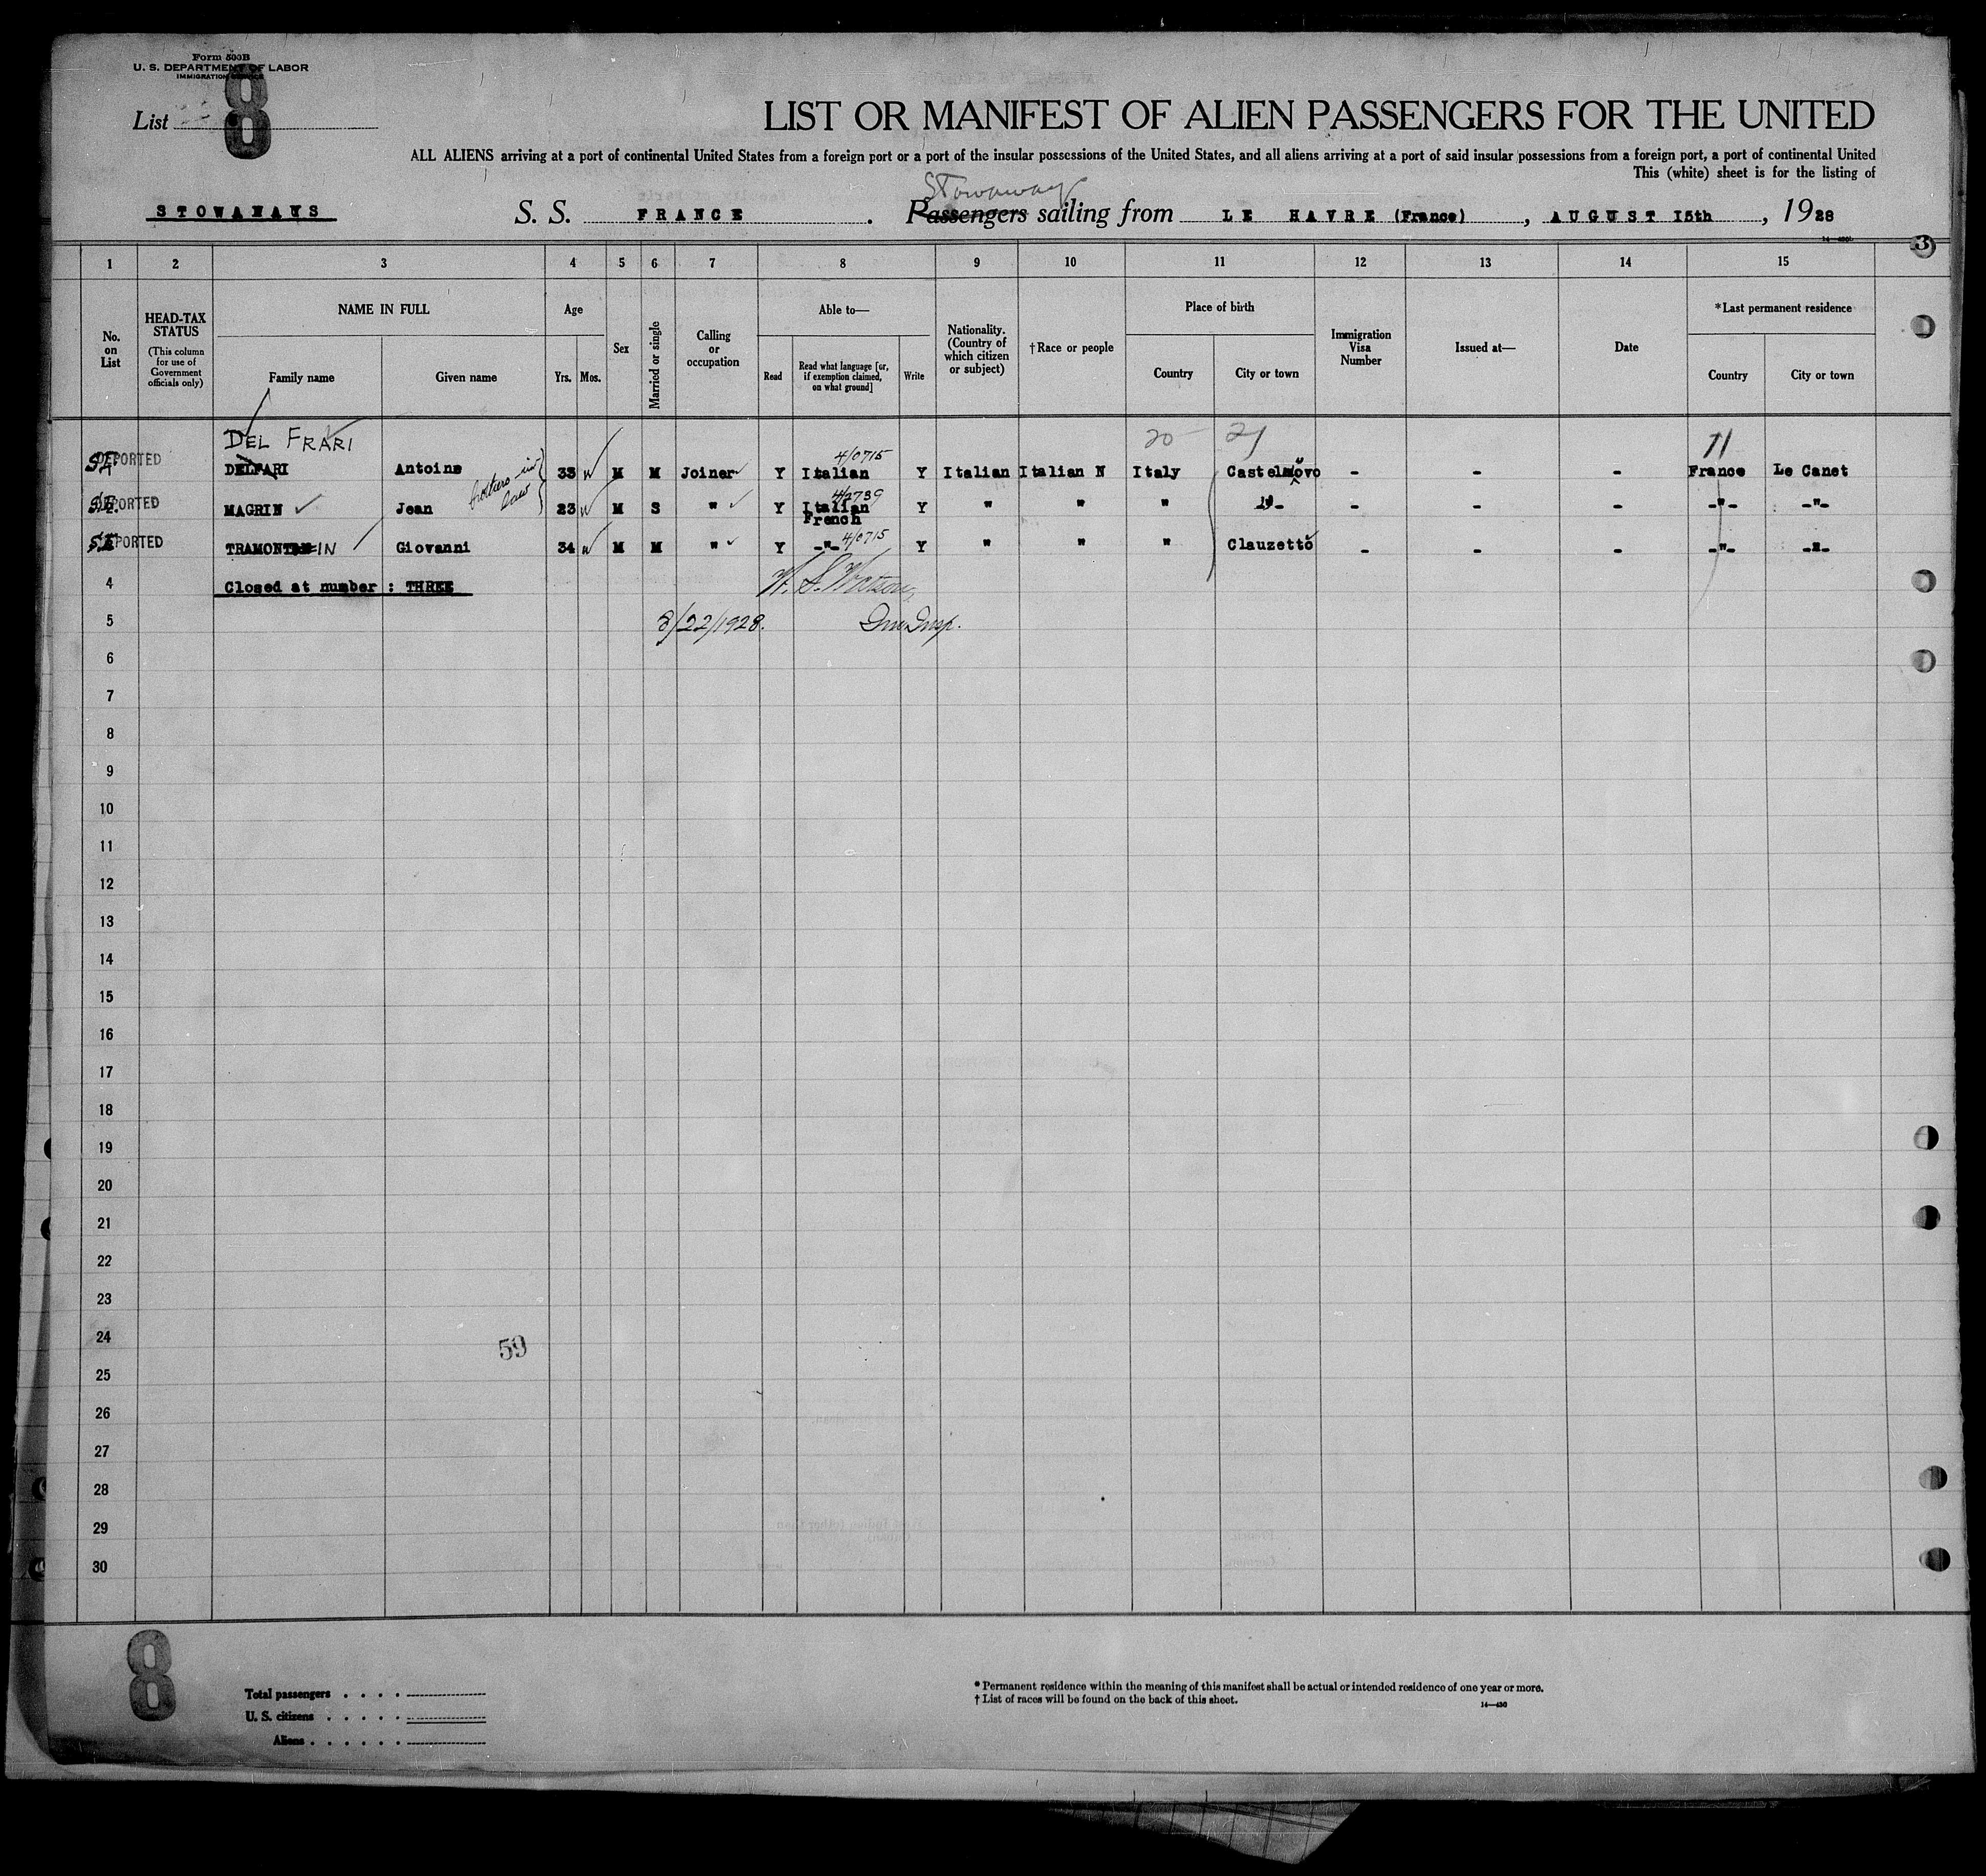 Form 500B
U. S. DEPARTMENT OF LABOR
IMMIGRATION SERVICE
List 8
LIST OR MANIFEST OF ALIEN PASSENGERS FOR THE UNITED
ALL ALIENS arriving at a port of continental United States from a foreign port or a port of the insular possessions of the United States, and all aliens arriving at a port of said insular possessions from a foreign port, a port of continental United
This (white) sheet is for the listing of
Stowaways
STOWAWAYS S. S. FRANCE . Passengers sailing from LE HAVRE (France) , AUGUST 15th , 1928
3
1 2 3 4 5 6 7 8 9 10 11 12 13 14 15
No. on List
HEAD-TAX STATUS (This column for use of Government officials only)
NAME IN FULL
Family name Given name
Age
Yrs. Mos.
Sex
Married or single
Calling or occupation
Able to—
Read Read what language [or, if exemption claimed, on what ground] Write
Nationality. (Country of which citizen or subject)
†Race or people
Place of birth
Country City or town
Immigration Visa Number
Issued at—
Date
*Last permanent residence
Country City or town
DEL FRARI 20 21 71
4/0715
DEPORTED DELFARI Antoine 33 M M Joiner Y Italian Y Italian Italian N Italy Castelnovo - - - France Le Canet
brothers-in law
4/2739
DEPORTED MAGRIN Jean 23 M S " Y Italian French Y " " " -"- - - - -"- -"-
DEPORTED TRAMONTIN Giovanni 34 M M " Y -"- 4/0715 Y " " " Clauzetto - - - -"- -"-
4 Closed at number : THREE W. S. Watson,
5 8/22/1928. Imm Insp.
6
7
8
9
10
11
12
13
14
15
16
17
18
19
20
21
22
23
24
59
25
26
27
28
29
30
8
Total passengers . . . .
U. S. citizens . . . . .
Aliens . . . . . .
* Permanent residence within the meaning of this manifest shall be actual or intended residence of one year or more.
† List of races will be found on the back of this sheet.
14—430